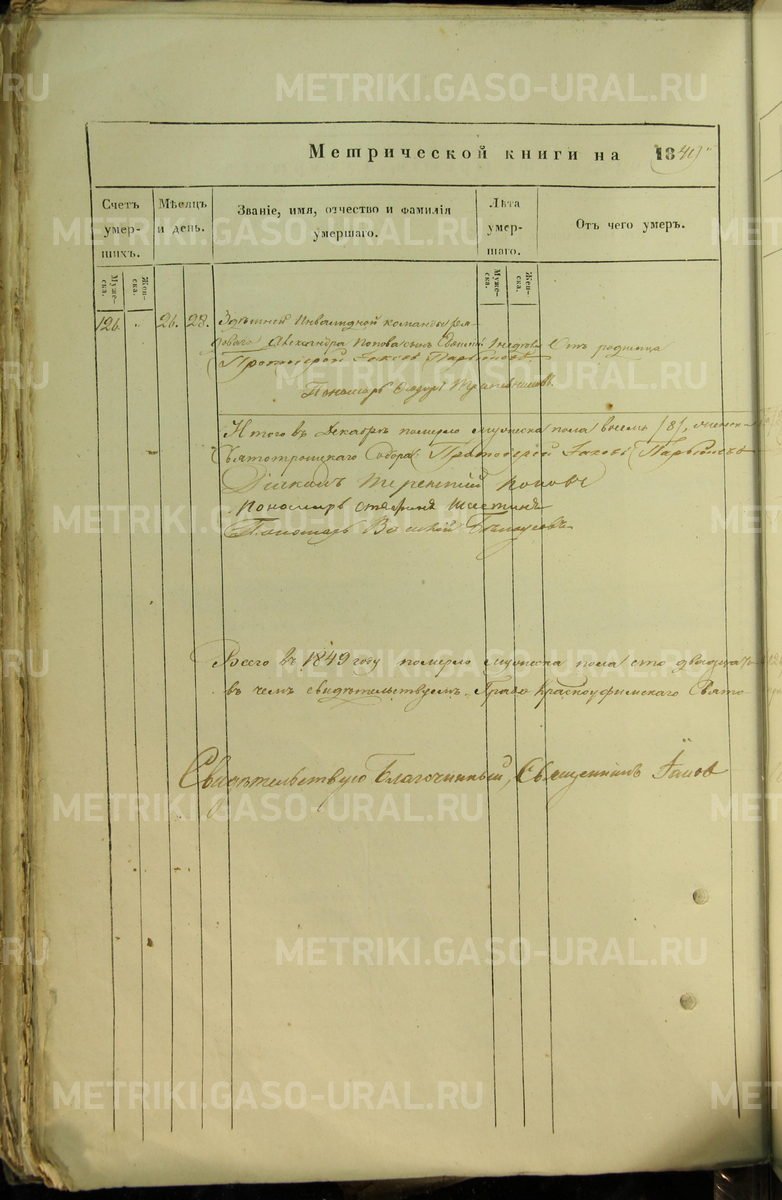 Метрической книги на 1849
Счетъ умер-шихъ.
Мѣсяцъ и день.
Званіе, имя, отчество и фамилія умершаго.
Лѣта умер-шаго.
Отъ чего умеръ.
Муже-ска.
Жен-ска.
Муже-ска.
Жен-ска.
126. 26. 28. Здѣшней Инвалидной команды ря-
доваго Александра Попова сынъ
Отъ родимца
Протоіерей Іаковъ
Пономарь
Итого въ Декабрѣ померло мужеска пола восемь /8/, женска
Святотроицкаго Собора Протоіерей Іаковъ
Діаконъ Терентій Поповъ
Пономарь Стефанъ
Пономарь Василій
Всего въ 1849 году померло мужеска пола сто двадцать
въ чемъ свидѣтельствуемъ. Града Красноуфимскаго Свято
Свидѣтельствую Благочинный, Священникъ
METRIKI.GASO-URAL.RU